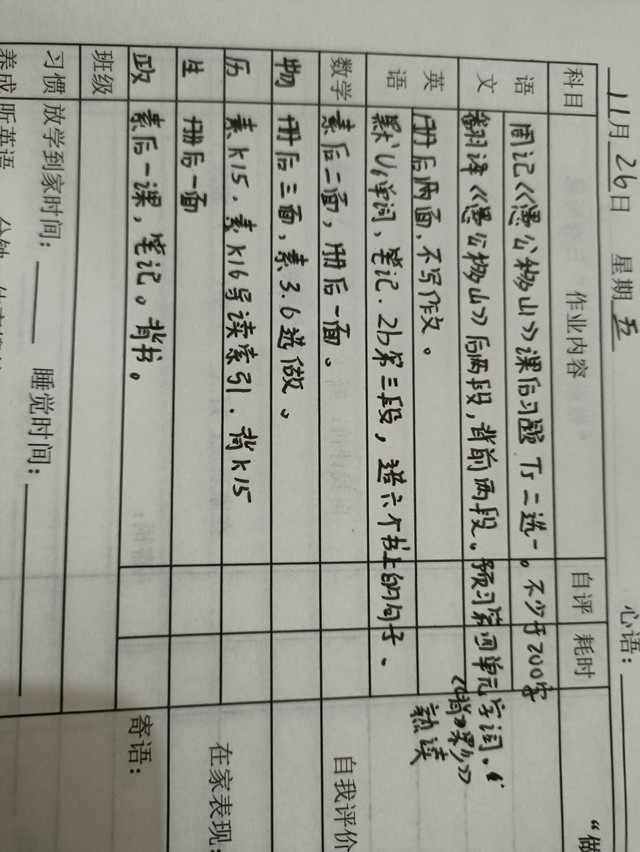 11月26日 星期五 心语：
科目 作业内容 自评 耗时
语文 周记《愚公移山》课后习题 T5 二选一。不少于200字
翻译《愚公移山》后两段，背前两段、预习第四单元字词、《背影》熟读
英语 册后两面，不写作文。
默U6单词，笔记．2b第三段，造六个书上的句子、
数学 素后二面，册后一面。
物 册后三面，素3.6选做。
历 素k15．素k16导读索引、背k15
生 册后一面
政 素后一课，笔记。背书。
班级
习惯 放学到家时间： 睡觉时间：
养成 听英语 分钟
“做
自我评价
在家表现：
寄语：